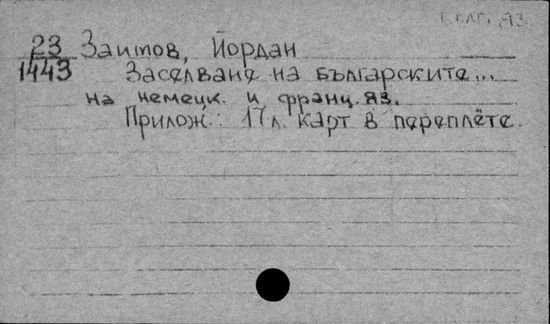 болг. яз.
23 Заимов, Йордан
1443 Заселване на българските...
на немецк. и франц. яз.
Прилож.: 17 л. карт в переплёте.